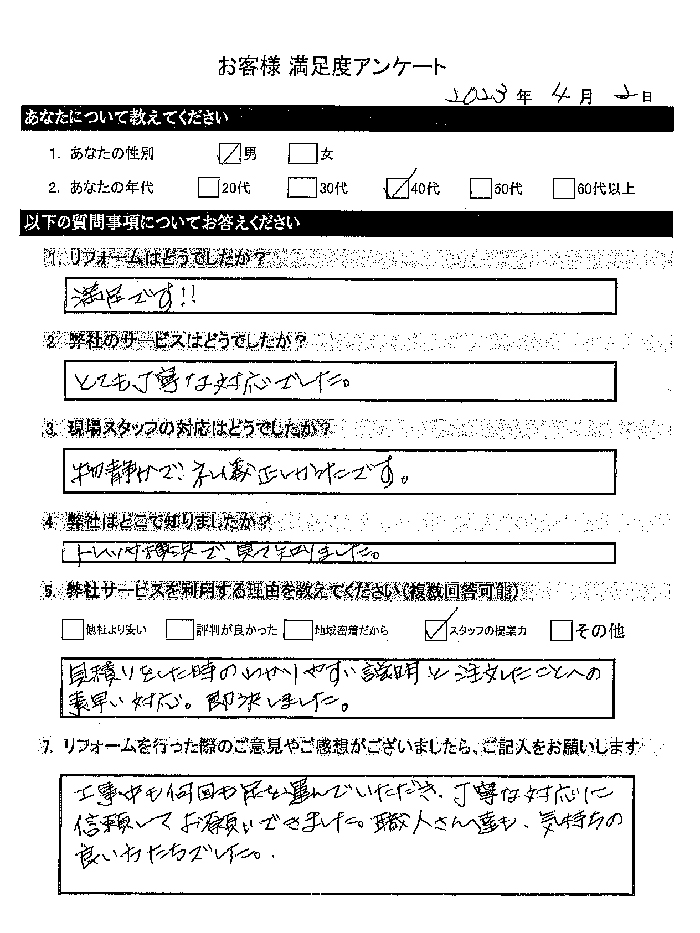 お客様 満足度アンケート
2023年 4月 2日
あなたについて教えてください
1. あなたの性別 男 女
2. あなたの年代 20代 30代 40代 50代 60代以上
以下の質問事項についてお答えください
1. リフォームはどうでしたか?
満足です!!
2. 弊社のサービスはどうでしたか?
とても丁寧な対応でした。
3. 現場スタッフの対応はどうでしたか?
物静かで、礼儀正しいかたです。
4. 弊社はどこで知りましたか?
で、見て知りました。
5. 弊社サービスを利用する理由を教えてください(複数回答可能)
他社より安い 評判が良かった 地域密着だから スタッフの提案力 その他
見積りをした時のわかりやすい説明と注文したことへの
素早い対応。即決しました。
7. リフォームを行った際のご意見やご感想がございましたら、ご記入をお願いします
工事中も何回も足を運んでいただき、丁寧な対応に
信頼してお願いできました。職人さん達も、気持ちの
良い方たちでした。